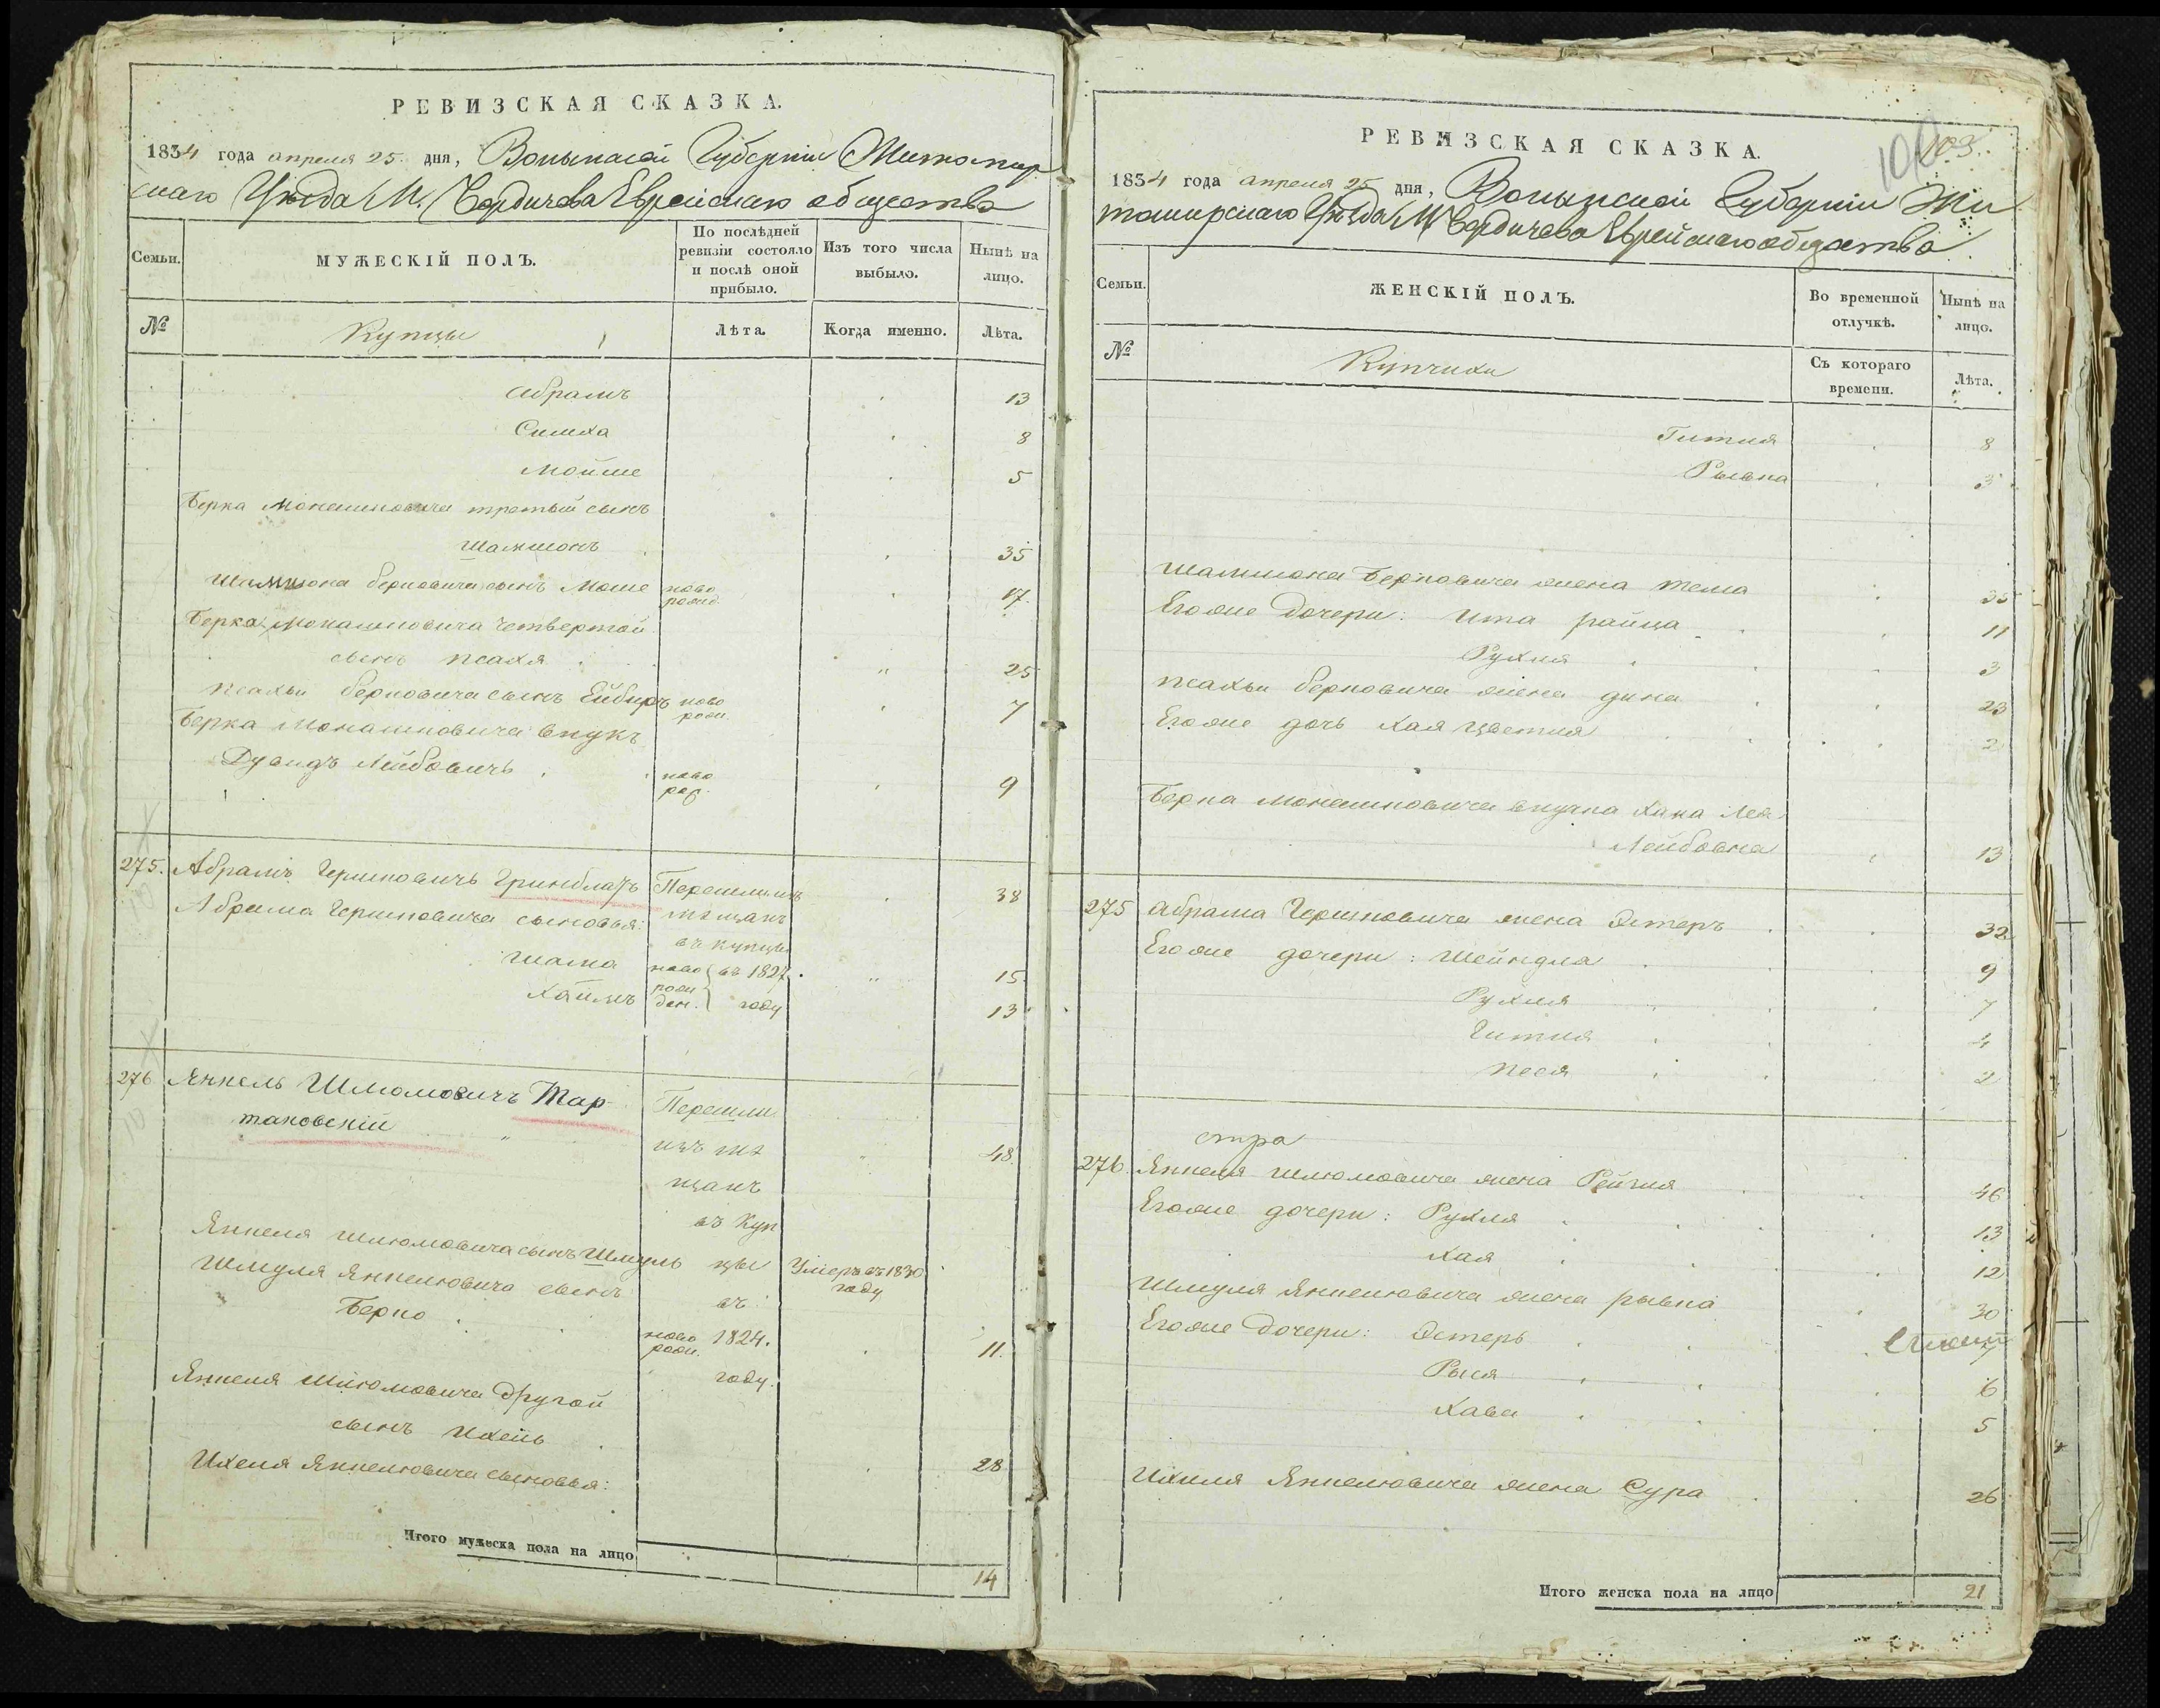 РЕВИЗСКАЯ СКАЗКА.
1834 года апреля 25 дня, Волынской Губерніи Житомир
скаго Уѣзда М. Бердичева Еврейскаго общества
Семьи.
МУЖЕСКІЙ ПОЛЪ.
По послѣдней ревизіи состояло и послѣ оной прибыло.
Изъ того числа выбыло.
Нынѣ на лицо.
№
Купцы
Лѣта.
Когда именно.
Лѣта.
Абрамъ 13
Симха 8
Мойше 5
Берка Монашковича третый сынъ
Шамшонъ 35
Шамшона Берковича сынъ Моше ново рожд. 17.
Берка Монашковича четвертой
сынъ Псахя 25
Псахьи Берковича сынъ ново рож. 7
Берка Монашковича внукъ
Дувидъ Лейбовичъ ново рож. 9
275. Абрамъ Гершковичъ Гринблатъ Перешли изъ 38
Абрама Гершковича сыновья: мѣщанъ
въ купцы
Шалма ново въ 1827 15
Хаймъ рож ден. году 13
276 Янкель Шлюмовичъ Тар-
таковскій Перешли
изъ мѣ 48
щанъ
въ Куп
Янкеля Шлюмовича сынъ Шмуль цы Умеръ въ 1830 году
Шмуля Янкелювича сынъ въ
Берко ново рож. 1824. 11.
году.
Янкеля Шлюмовича другой
сынъ Ихель 28
Ихеля Янкелювича сыновья:
Итого мужеска пола на лицо 14
РЕВИЗСКАЯ СКАЗКА.
1834 года апреля 25 дня, Волынской Губерніи Жи
томирскаго Уѣзда М. Бердичева Еврейскаго общества
Семьи.
ЖЕНСКІЙ ПОЛЪ.
Во временной отлучкѣ.
Нынѣ на лицо.
№
Купчихи
Съ котораго времени.
Лѣта.
Гитля 8
Рывка 3
Шамшона Берковича жена Тема 35
Егоже Дочери: Ита Райца 11
Рухля 3
Псахьи Берковича жена Дина 23
Егоже дочь Хая Цветля 2
Берка Монашковича внучка Хана Лея
Лейбовна 13
275 Абрама Гершковича жена Эстеръ 32
Егоже дочери: Шейндля 9
Рухля 7
Гитля 4
Песя 2
276. Янкеля Шлюмовича жена Рейзля 46
Егоже дочери: Рухля 13
Хая 12
Шмуля Янкелювича жена Рывка 30
Егоже Дочери: Эстеръ
Рыся 6
Хава 5
Ихиля Янкелювича жена Сура 26
Итого женска пола на лицо 21